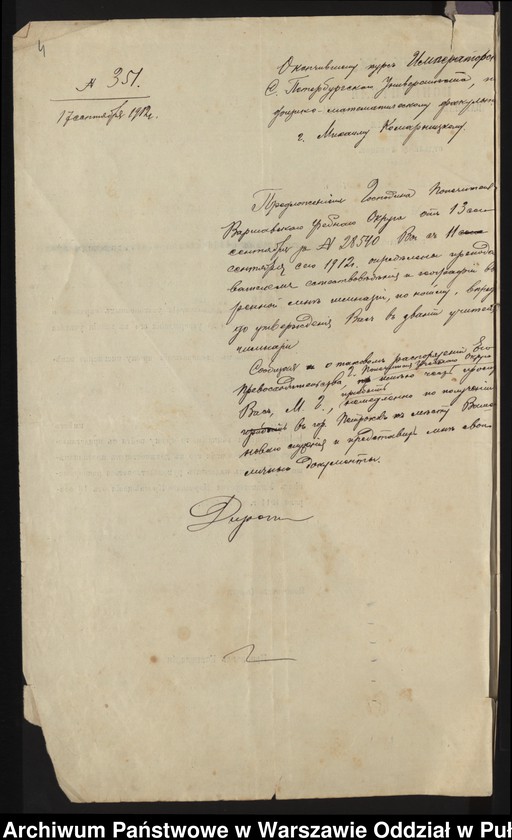 4
№ 351.
17 сентября 1912 г.
Окончившему курс Император
С. Петербургского Университета, по
физико-математическому факульт
г. Михаилу Комарницкому.
Предложением Господина Попечителя
Варшавскаго Учебнаго Округа от 13 сего
сентября за № 28540 Вы с 11
сентября сего 1912 г. определены препода
вателем естествоведения и географии в
ренной мне гимназии, по найму, впредь
до утверждения Вас в звании учителя
гимназии.
Сообщая о таковом распоряжении Его
Превосходительства г. Попечителя Учебнаго Округа
Вас, М. Г., прибыть немедленно по получении
в гор. к месту Ваше
новаго служения и представить мне свои
личные документы.
Директор
Archiwum Państwowe w Warszawie Oddział w Puł